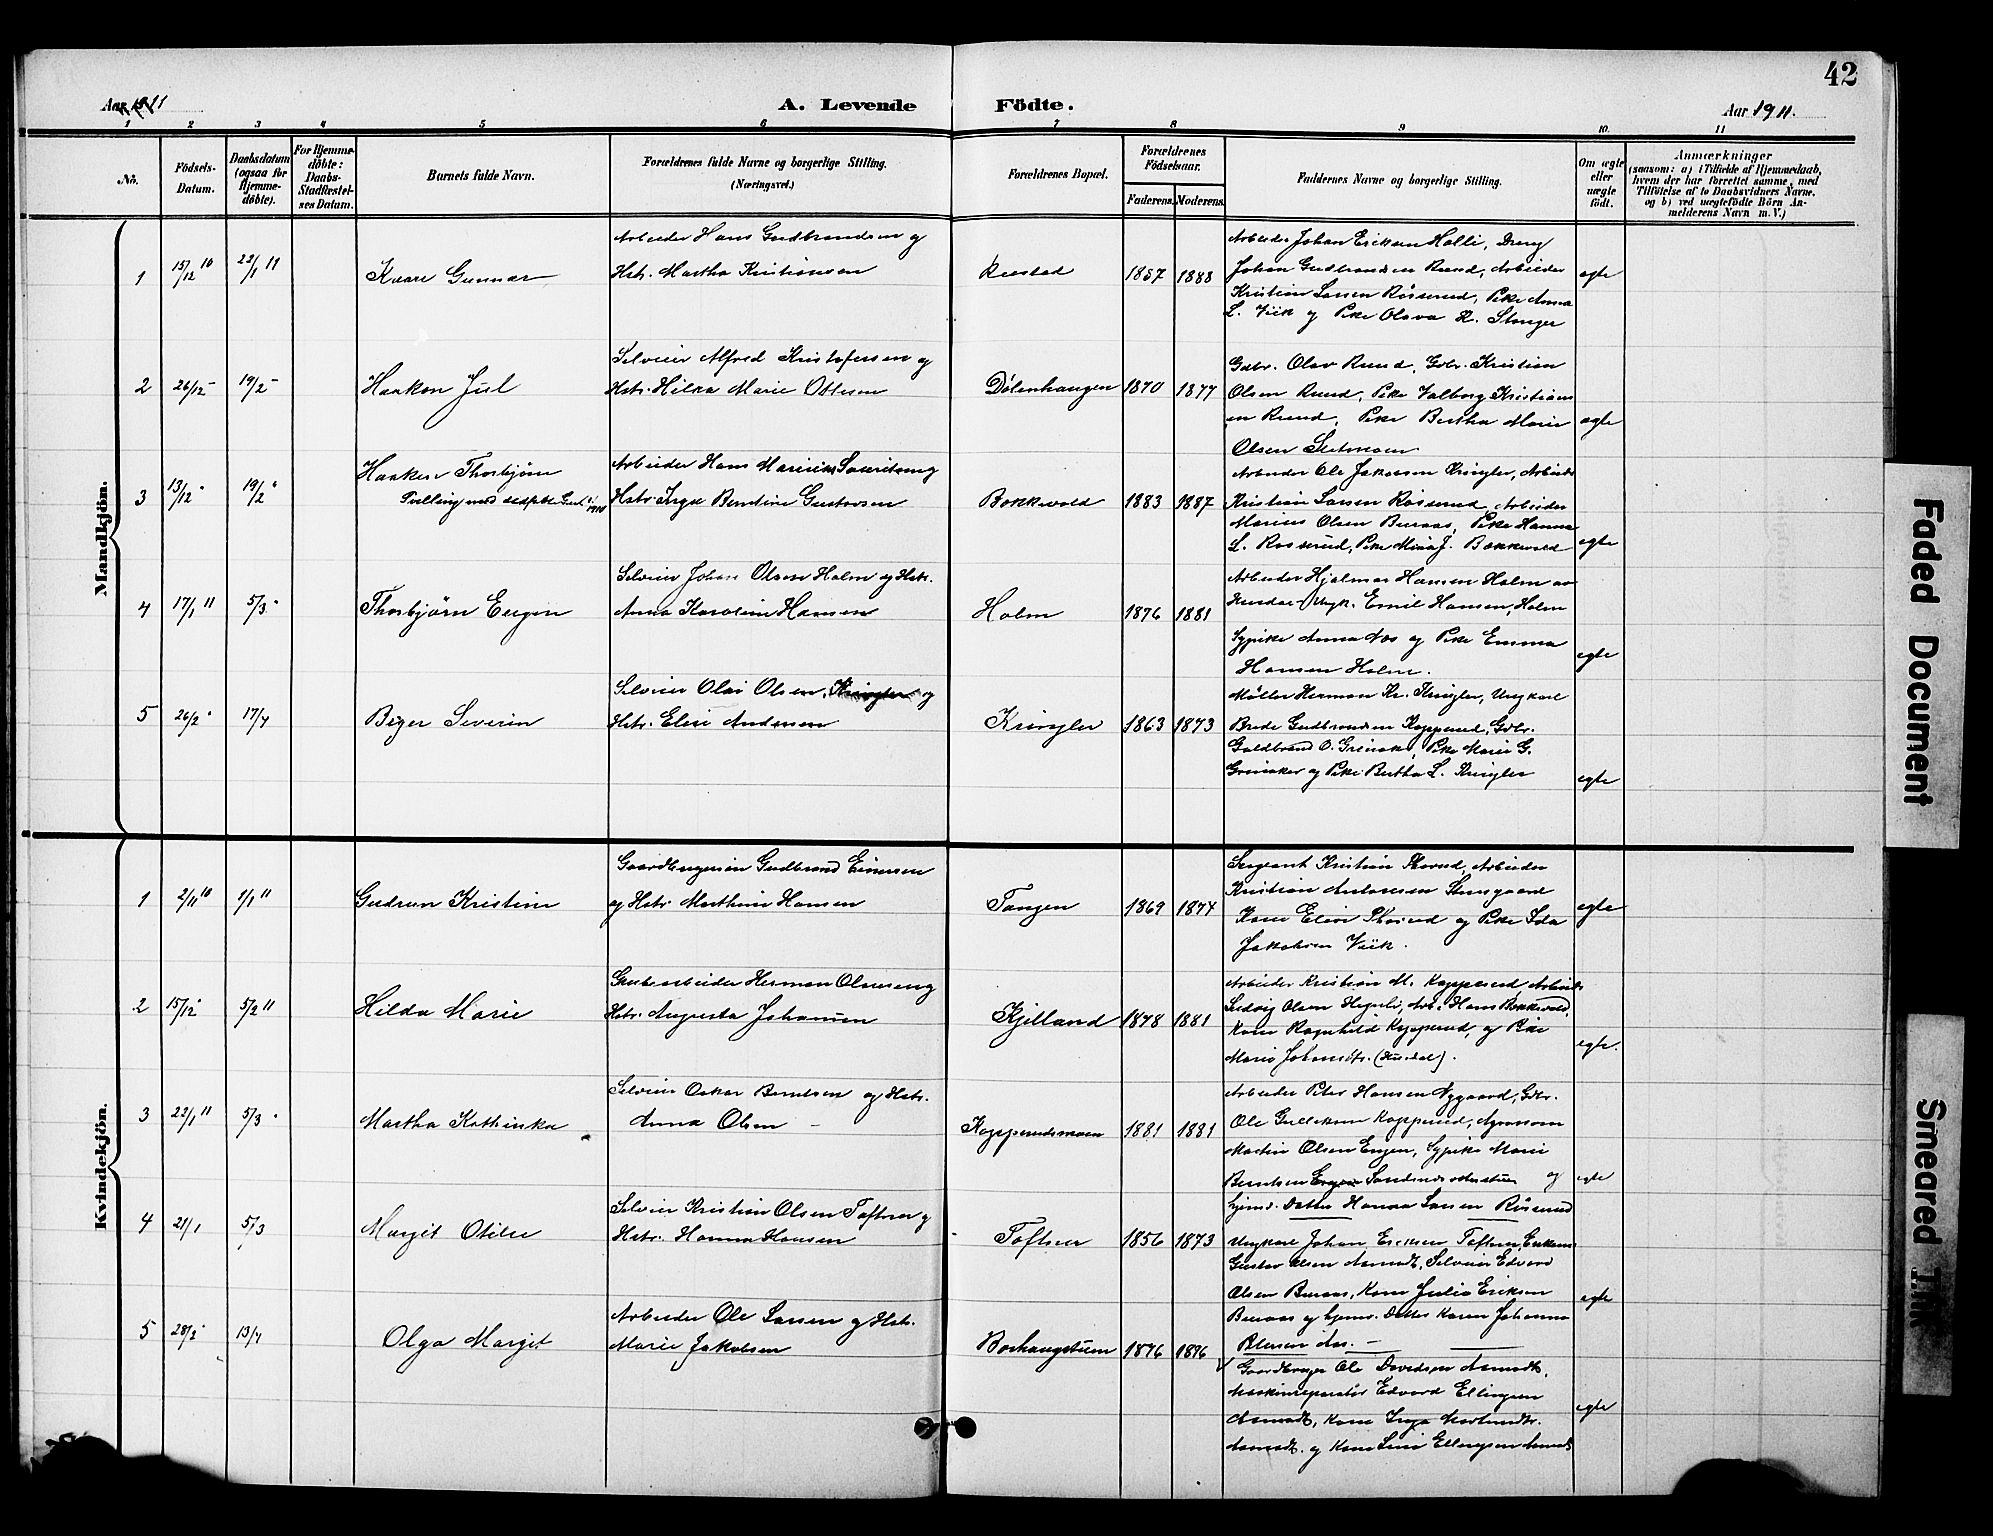 42
Aar 1911
A. Levende Födte.
Aar 1911.
1 2 3 4 5 6 7 8 9 10 11
No.
Födsels-Datum.
Daabsdatum (ogsaa for Hjemme-döbte).
For Hjemme-döbte: Daabs-Stadfæstel-ses Datum.
Barnets fulde Navn.
Forældrenes fulde Navne og borgerlige Stilling. (Næringsvei.)
Forældrenes Bopæl.
Forældrenes Födselsaar.
Faderens. Moderens.
Faddernes Navne og borgerlige Stilling.
Om ægte eller uægte födt.
Anmærkninger
(saasom: a) i Tilfælde af Hjemmedaab, hvem der har forrettet samme, med Tilföielse af to Daabsvidners Navne, og b) ved uægtefödte Börn An-melderens Navn m. V.)
Mandkjön.
1 15/12 10 22/1 11 Kaare Gunnar
Arbeider Hans Gudbrandsen og
Hstr. Martha Kristiansen
1857 1888
Arbeider Johan Eriksen Holli, Dreng
Johan Gudbrandsen Ruud, Arbeider
Kristian Larsen Rösserud, Pike Anna
L. Viik og Pike Olava H. Stanger
egte
2 26/12 - 19/2 - Haakon Jul
Selveier Alfred Kristofersen og
Hstr. Hilda Marie Ottesen
Dølenhaugen 1870 1877
Gdbr. Olav Ruud, Gdbr. Kristian
Olsen Ruud, Pike Valborg Kristians
en Ruud, Pike Bertha Marie
Olsen
egte
3 13/12 " 19/2 " Haakon Thorbjørn
Tvilling med dødfødte 1910
Arbeider Hans
Hstr. Inga Berntine Gustavsen
Bakkevold 1883 1887
Arbeider Ole Jakobsen Kringler, Arbeider
Kristian Larsen Rösserud, Arbeider
Marius Olsen Buraas, Pike Hanna
L. Rosserud, Pike J. Bakkevold
egte
4 17/1 11 5/3 " Thorbjørn Eugen
Selveier Johan Olsen Holm og Hstr.
Anna Karoline Hansen
Holm 1876 1881
Arbeider Hjalmar Hansen Holm av
Hurdal - Ungk. Emil Hansen, Holm
Sypike Anna Aas og Pike Emma
Hansen Holm.
egte
5 26/2 " 17/4 Birger Severin
Selveier Olai Olsen Kringler og
Hstr. Elise Andersen
Kringler 1863 1873
Møller Herman Kr. Kringler, Ungkarl
Brede Gudbrandsen Kopperud, Gdbr.
Guldbrand O. Grinaker, Pike Marie G.
Grinaker og Pike Bertha L. Kringler
egte
Kvindekjön.
1 2/11 10 1/1 11 Gudrun Kristine
Gaardbrugeren Gudbrand Einersen
og Hstr. Marthine Hansen
Tangen 1869 1874
Sergeant Kristian Skorud, Arbeider
Kristian Stensgaard
Kone Elise Skorud og Pike Ida
Jakobsen Viik.
egte
2 15/12 " 5/2 11 Hilda Marie
Grubearbeider Herman Olsen og
Hstr. Augusta Johansen
Kjelland 1878 1881
Arbeider Kristian M. Kopperud, Arbeider
Ludvig Olsen Hegnli, Arb. Hans Bakkevold,
Kone Ragnhild Kopperud, og Pike
Marie Johansdtr. (Hurdal).
egte.
3 22/1 11 5/3 " Martha Kathinka
Selveier Oskar Berntsen og Hstr.
Anna Olsen -
Kopperudsmoen 1881 1881
Arbeider Peter Hansen Nygaard, Gdbr.
Ole Gulliksen Kopperud, Agronom
Martin Olsen Engen, Sypike Marie
Berntsen og
hjemv. Datter Hanna Larsen Rösserud
egte
4 21/1 5/3 Margit Otilie
Selveier Kristian Olsen Toftner og
Hstr. Hanna Hansen
Toftner 1856 1873
Ungkarl Johan Eriksen Toftner,
Gustav Olsen Aamodt, Selveier Edvard
Olsen Buraas, Kone Julie Eriksen
Buraas og hjemv. Datter Karen Johanna
Aas. -
egte
5 28/2 " 13/4 Olga Margit
Arbeider Ole Larsen og Hstr.
Marie Jakobsen
1876 1876
Gaardbruger Ole Davidsen Aamodt,
Maskinreparatør Edvard Ellingsen
Aamodt, Kone Inga
Aamodt og Kone Lina Ellingsen Aamodt
egte
Faded Document
Smeared Ink